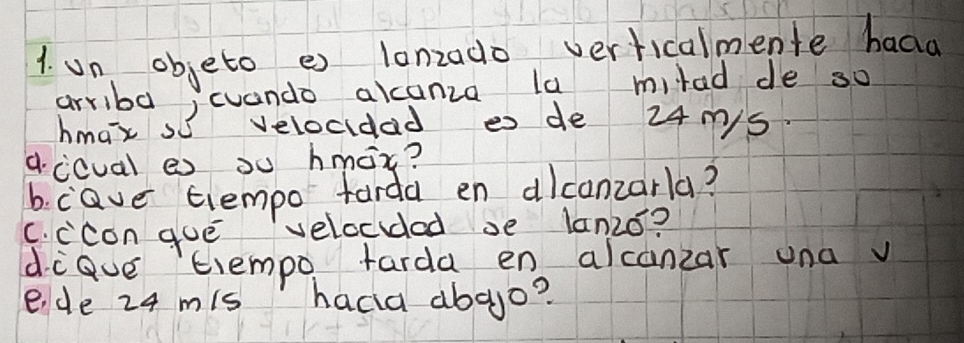 1. Un objeto es lanzado verticalmente hacia
arriba, cuando alcanza la mitad de so
hmáx su velocidad es de 24 m/s.
a. ¿Cual es su hmáx?
b. ¿Que tiempo tarda en alcanzarla?
c. ¿Con qué velocidad se lanzó?
d. ¿Qué tiempo tarda en alcanzar una v
e. de 24 m/s hacia abajo?